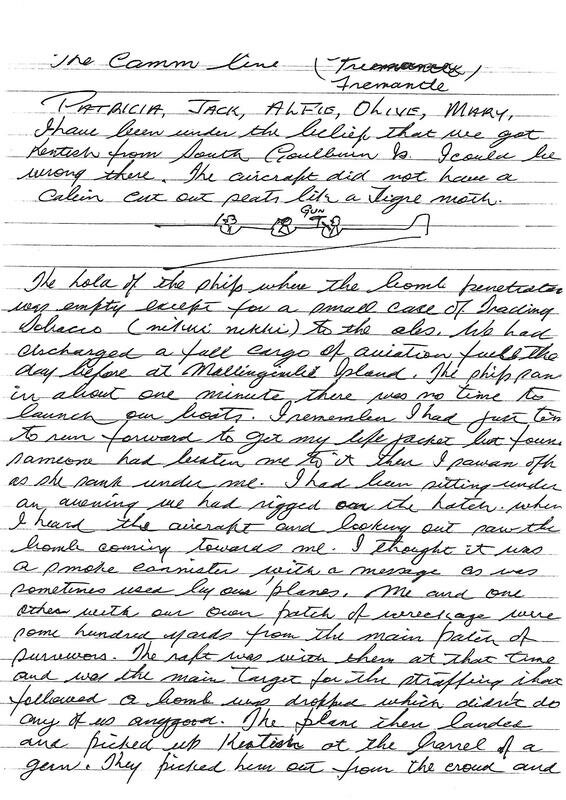 The Camm Line (Fremantle)
Fremantle
PATRICIA, JACK, ALFIE, OLIVE, MARY,
I have been under the belief that we got
Kentish from South Goulburn Is. I could be
wrong there. The aircraft did not have a
cabin cut out seats like a Tigre moth.
GUN
The hold of the ship where the bomb penetrated
was empty except for a small case of Trading
Tobacco (nikki nikki) to the abos. We had
discharged a full cargo of aviation fuel the
day before at Mallingimbil Island. The ship san
in about one minute there was no time to
launch our boats. I remember I had just tim
to run forward to get my life jacket but foun
someone had beaten me to it then I swam off
as she sank under me. I had been sitting under
an awning we had rigged on the hatch. when
I heard the aircraft and looking out saw the
bomb coming towards me. I thought it was
a smoke cannister with a message as was
sometimes used by our planes. Me and one
other with our own patch of wreckage were
some hundred yards from the main patch of
survivors. The raft was with them at that time
and was the main target for the straffing that
followed a bomb was dropped which didn't do
any of us anygood. The plane then landed
and picked up Kentish at the barrel of a
gun. They picked him out from the croud and